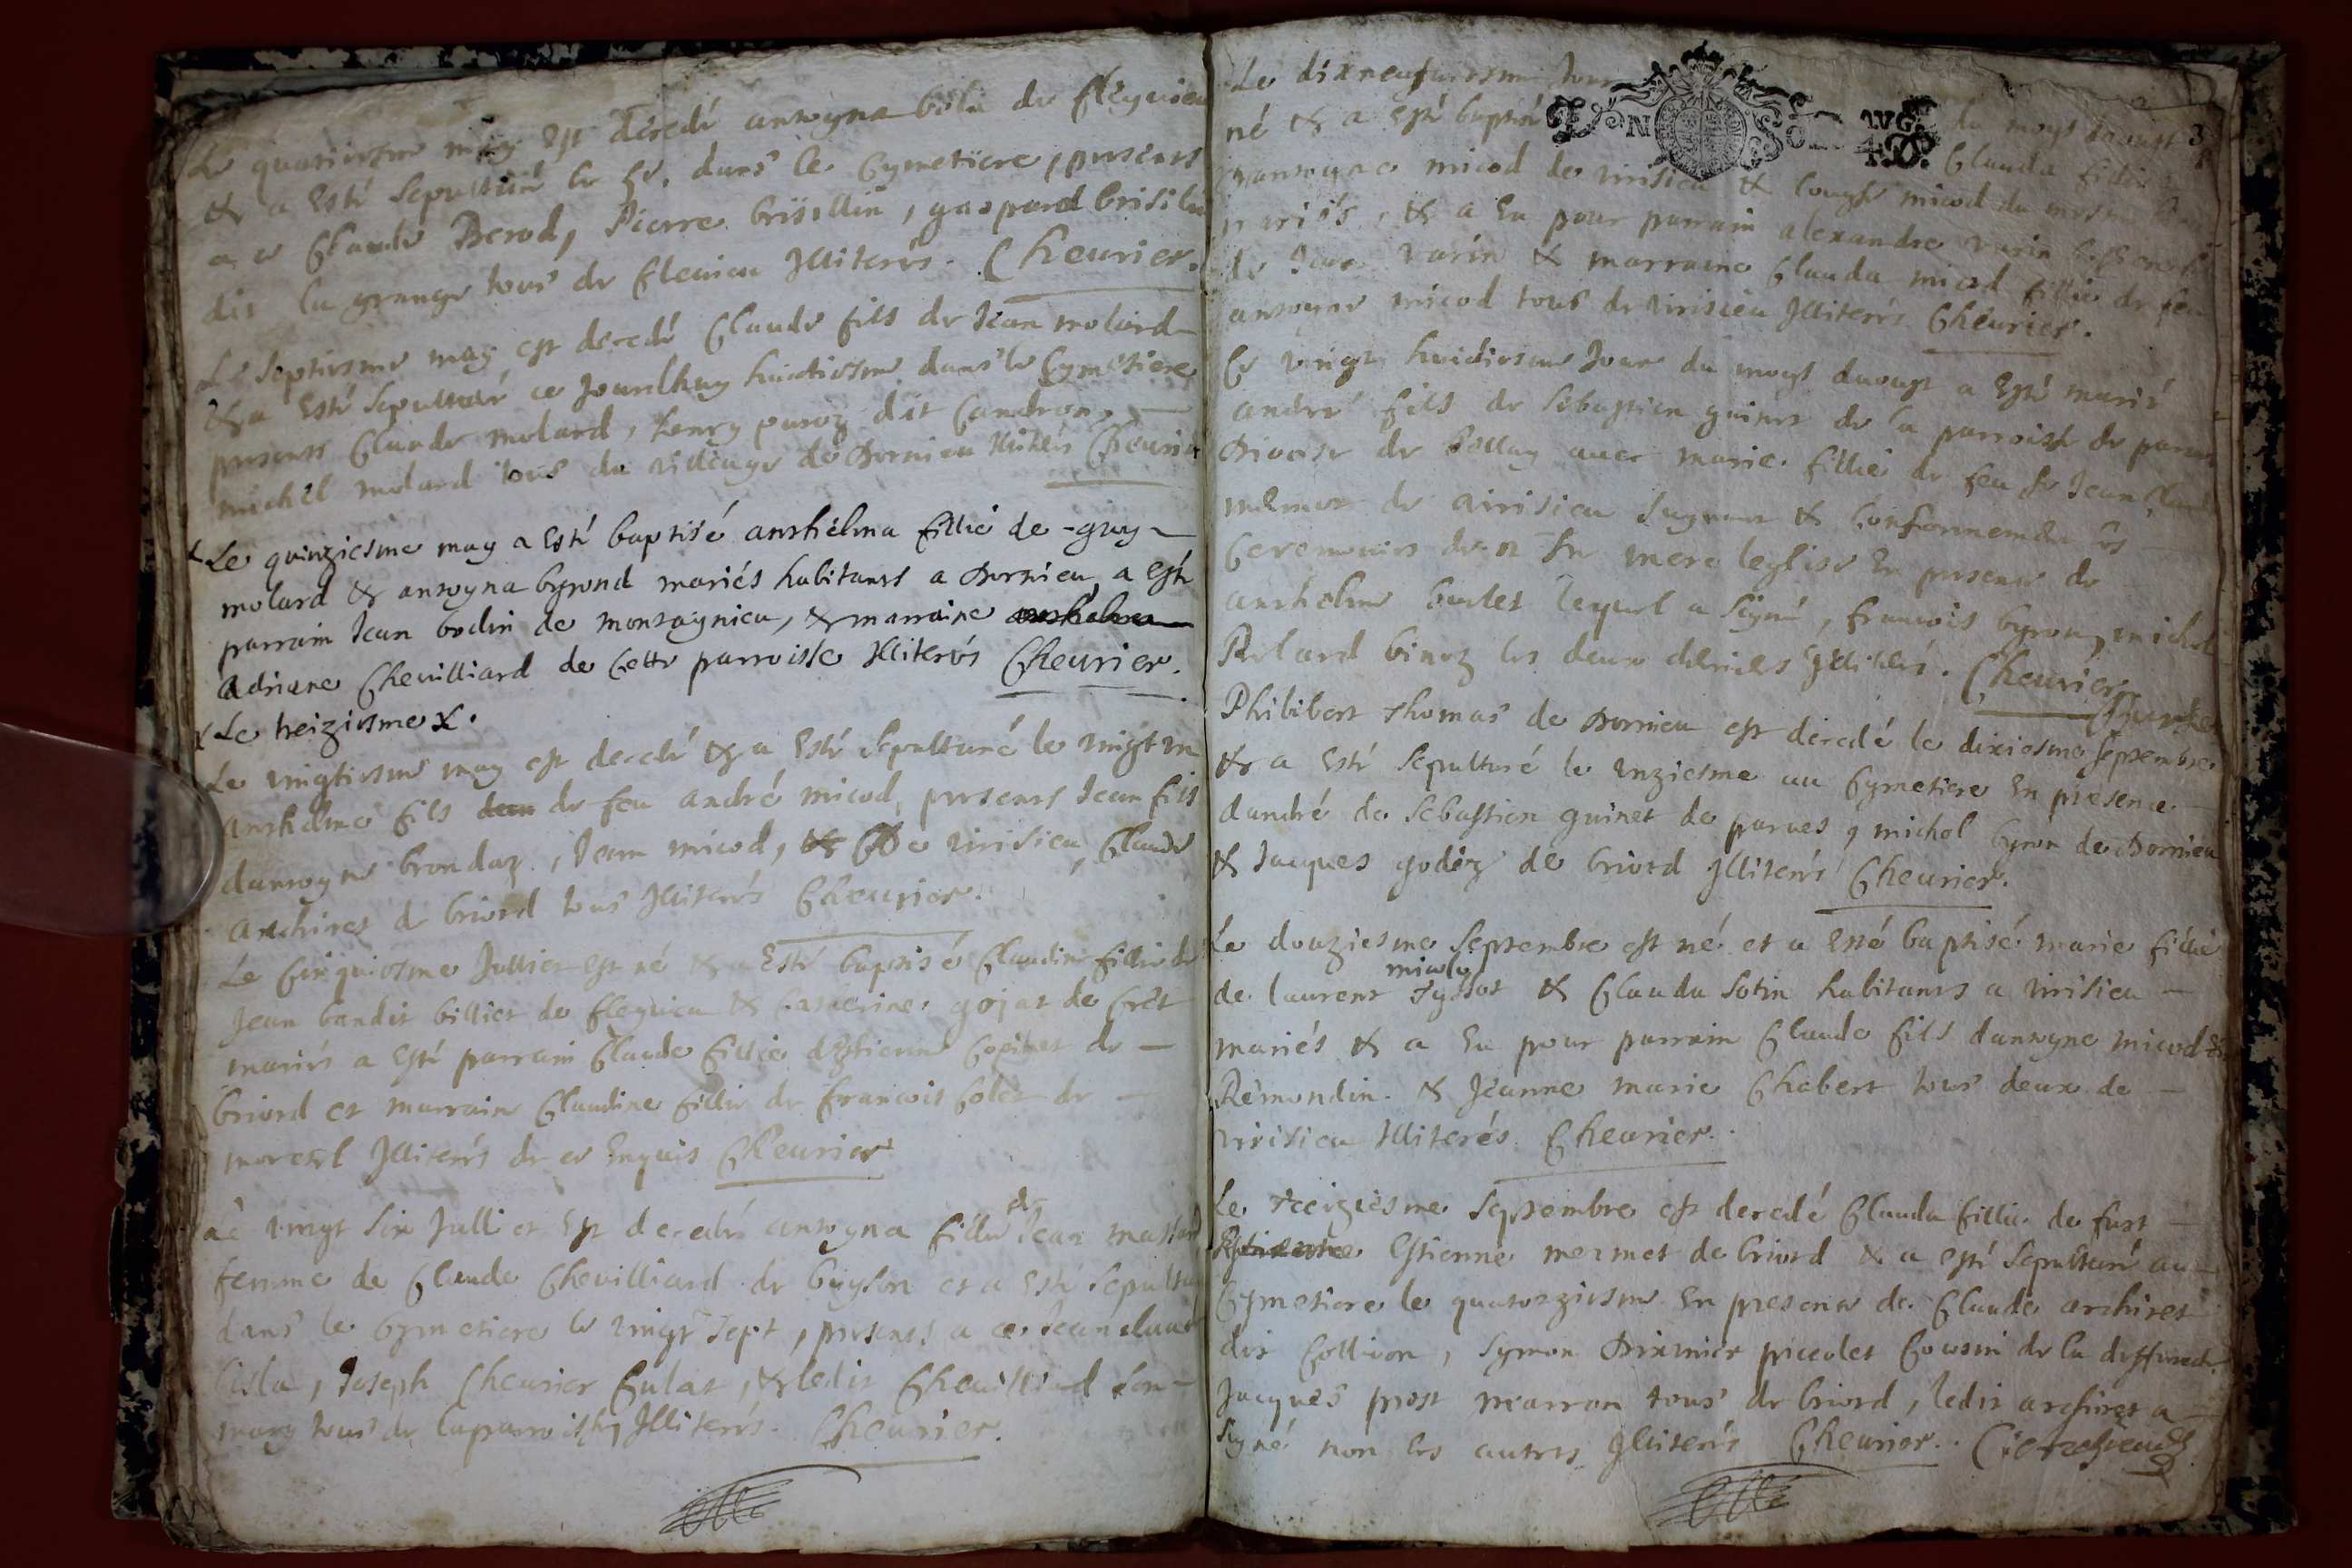 Le quatriesme may est decedé antoyna bolu de flegnieu
& a Esté Sepulturé le 5e. dans le Cymetiere, presents
a ce Claude Berod, Pierre brisillin, gaspard brisilin
dit la grange tous de flenieu Illiterés. Cheurier.
Le Septiesme may est decedé Claude fils de Jean molard
& a Esté Sepulturé ce Jourdhuy huictiesme dans le Cymetiere
presents Claude molard, henry paroz dit Candron,
michel molard tous du village de Dornieu Illiterés Cheurier
Le quinziesme may a Esté baptisé anthelma fillie de guy
molard & antoyna byrond mariés habitants a Dornieu, a esté
parrain Jean bodin de montagnieu, & marraine anthelma
Adriane Cheuilliard de Cette parroisse Illiterés Cheurier.
Le treiziesme
Le vingtiesme may est decedé & a Esté Sepulturé le vingt un
Anthelme fils de feu andré micod, presents Jean fils
dantoyne brondaz, Jean micod, de virisieu, Claude
Archiret de briord tous Illiterés Cheurier.
Le Cinquiesme Jullier est né & a Esté baptisé Claudine fillie de
Jean bandit billiet de flegnieu & Catherine gojat de Crêt
mariés a esté parrain Claude fillie dEstienne Copinet de
briord et marraine Claudine fillie de francois Colet de
marestel Illiterés de ce Enquis Cheurier
Le vingt Six Jullier Est decedée antoyna fillie de Jean massard
femme de Claude Cheuilliard de buyson et a Esté Sepulturé
dans le Cymetiere le vingt sept, presents a ce Jean claude
Cisla, Joseph Cheurier Culat, & ledit Cheuilliard Son
mary tous de la parroisse Illiterés. Cheurier.
3
Le dixneufuiesme Jour du moys daoust
né & a esté baptisé Claude fillie
dantoyne micod de virisieu & micod du mesme lieu
mariés, & a Eu pour parrain alexandre varin
de Jean varin & marraine Glauda micod fillie de feu
antoyne micod tous de virisieu Illiterés Cheurier.
Le vingt huictiesme Jour du moys daoust a Esté marié
andré fils de Sébastien guinet de la parroisse de parues
Diocese de Bellay auec marie fillie de feu Sr Jean Claude
mermet de virisieu Suyuant & Conformement aux
Ceremonies de nre Ste mere leglise En presence de
anthelme burlet lequel a Signé, francois byron, michel
Rolard binoz les deux derniers Illiterés. Cheurier
Philibert thomas de Dornieu est decedé le dixiesme Septembre
& a Esté Sepulturé le vnziesme au Cymetiere En presence
dandré de Sebastien guinet de parues, michel byron de Dornieu
& Jacques godez de briord Illiterés Cheurier.
Le douziesme Septembre est né et a esté baptisé marie fillie
micoly
de laurent tyssot & Glauda Sotin habitants a virisieu
mariés & a Eu pour parrain Glaude fils dantoyne micod
Remondin & Jeanne marie Chabert tous deux de
virisieu Illiterés Cheurier.
Le treiziesme Septembre est decedé Glauda fillie de fust
Estienne mermet de briord & a esté Sepulturé au
Cymetiere le quatorziesme En presence de Glaude archiret
dit Collion, Symon Diximier piccolet Cousin de la deffuncte
Jacques prost marron tous de briord, ledit archiret a
Signé non les autres Illiterés Cheurier.